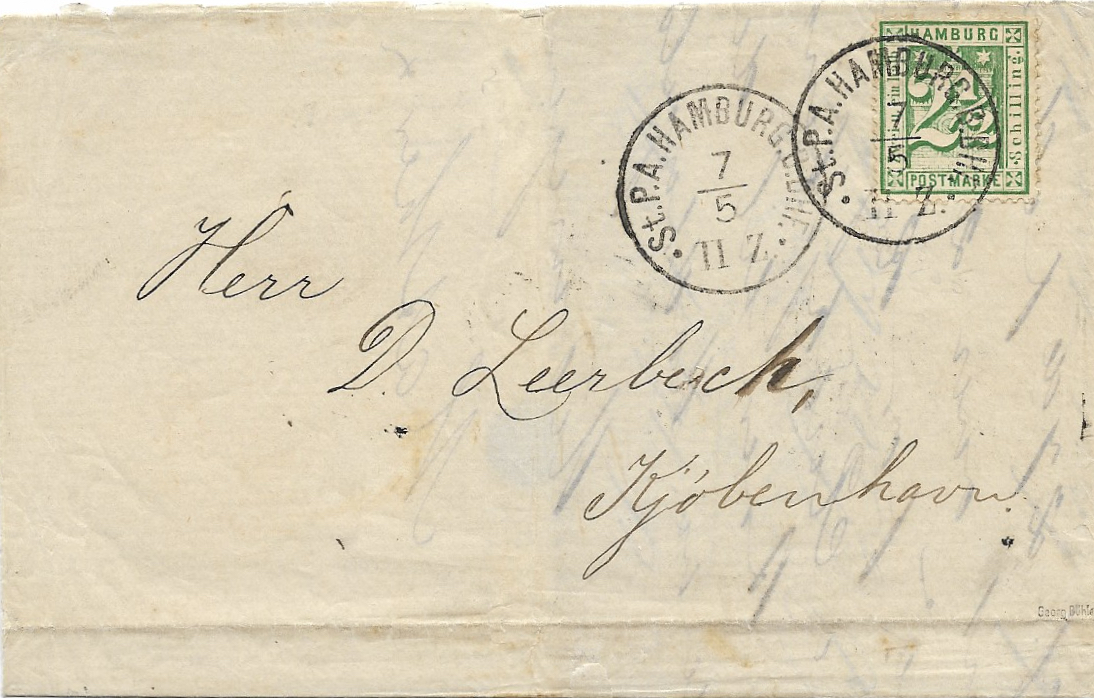 HAMBURG
Schilling.
2½
POSTMARKE
St.P.A.HAMBURG.
7
5
II Z.
St.P.A.HAMBURG.
7
5
II Z.
Herr
D. Leerbech,
Kjöbenhavn.
Georg Bühle